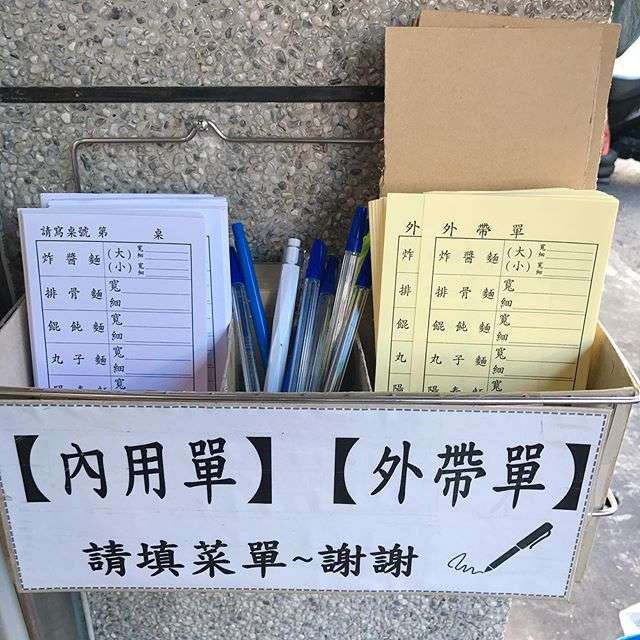 請寫桌號 第 桌
炸醬麵 (大) 寬 細
(小) 寬 細
排骨麵 寬
細
餛飩麵 寬
細
丸子麵 寬
細
寬
外
炸
排
餛
丸
陽
外帶單
炸醬麵 (大) 寬 細
(小) 寬 細
排骨麵 寬
細
餛飩麵 寬
細
丸子麵 寬
細
陽春麵 寬
【內用單】【外帶單】
請填菜單~謝謝